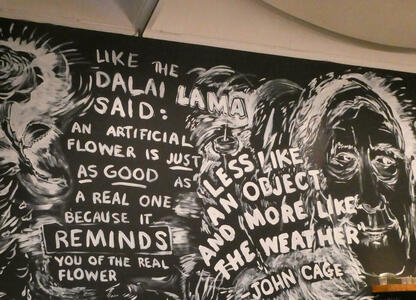 LIKE THE
DALAI LAMA
SAID:
AN ARTIFICIAL
FLOWER IS JUST
AS GOOD AS
A REAL ONE
BECAUSE IT
REMINDS
YOU OF THE REAL
FLOWER
LESS LIKE
AN OBJECT
AND MORE LIKE
THE WEATHER"
-JOHN CAGE